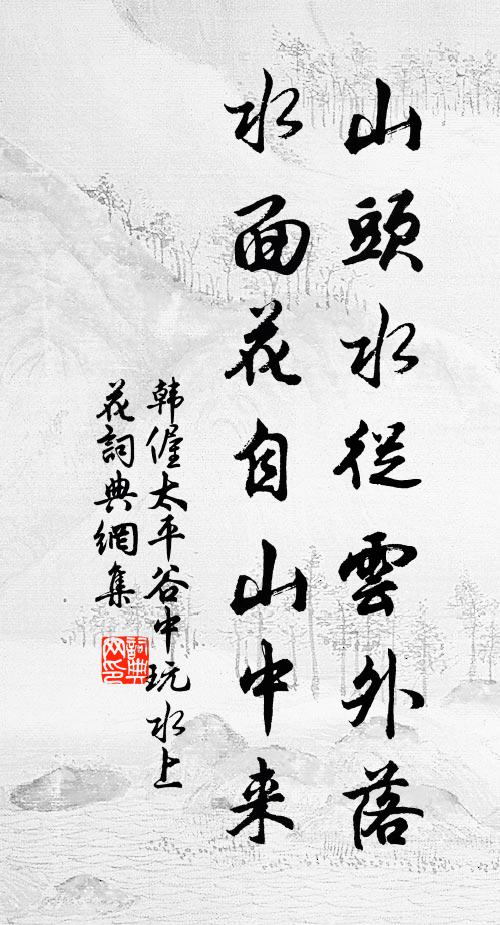 山頭水從雲外落
水面花自山中来
韩偓太平谷中玩水上
花詞典網集
詞典
网印